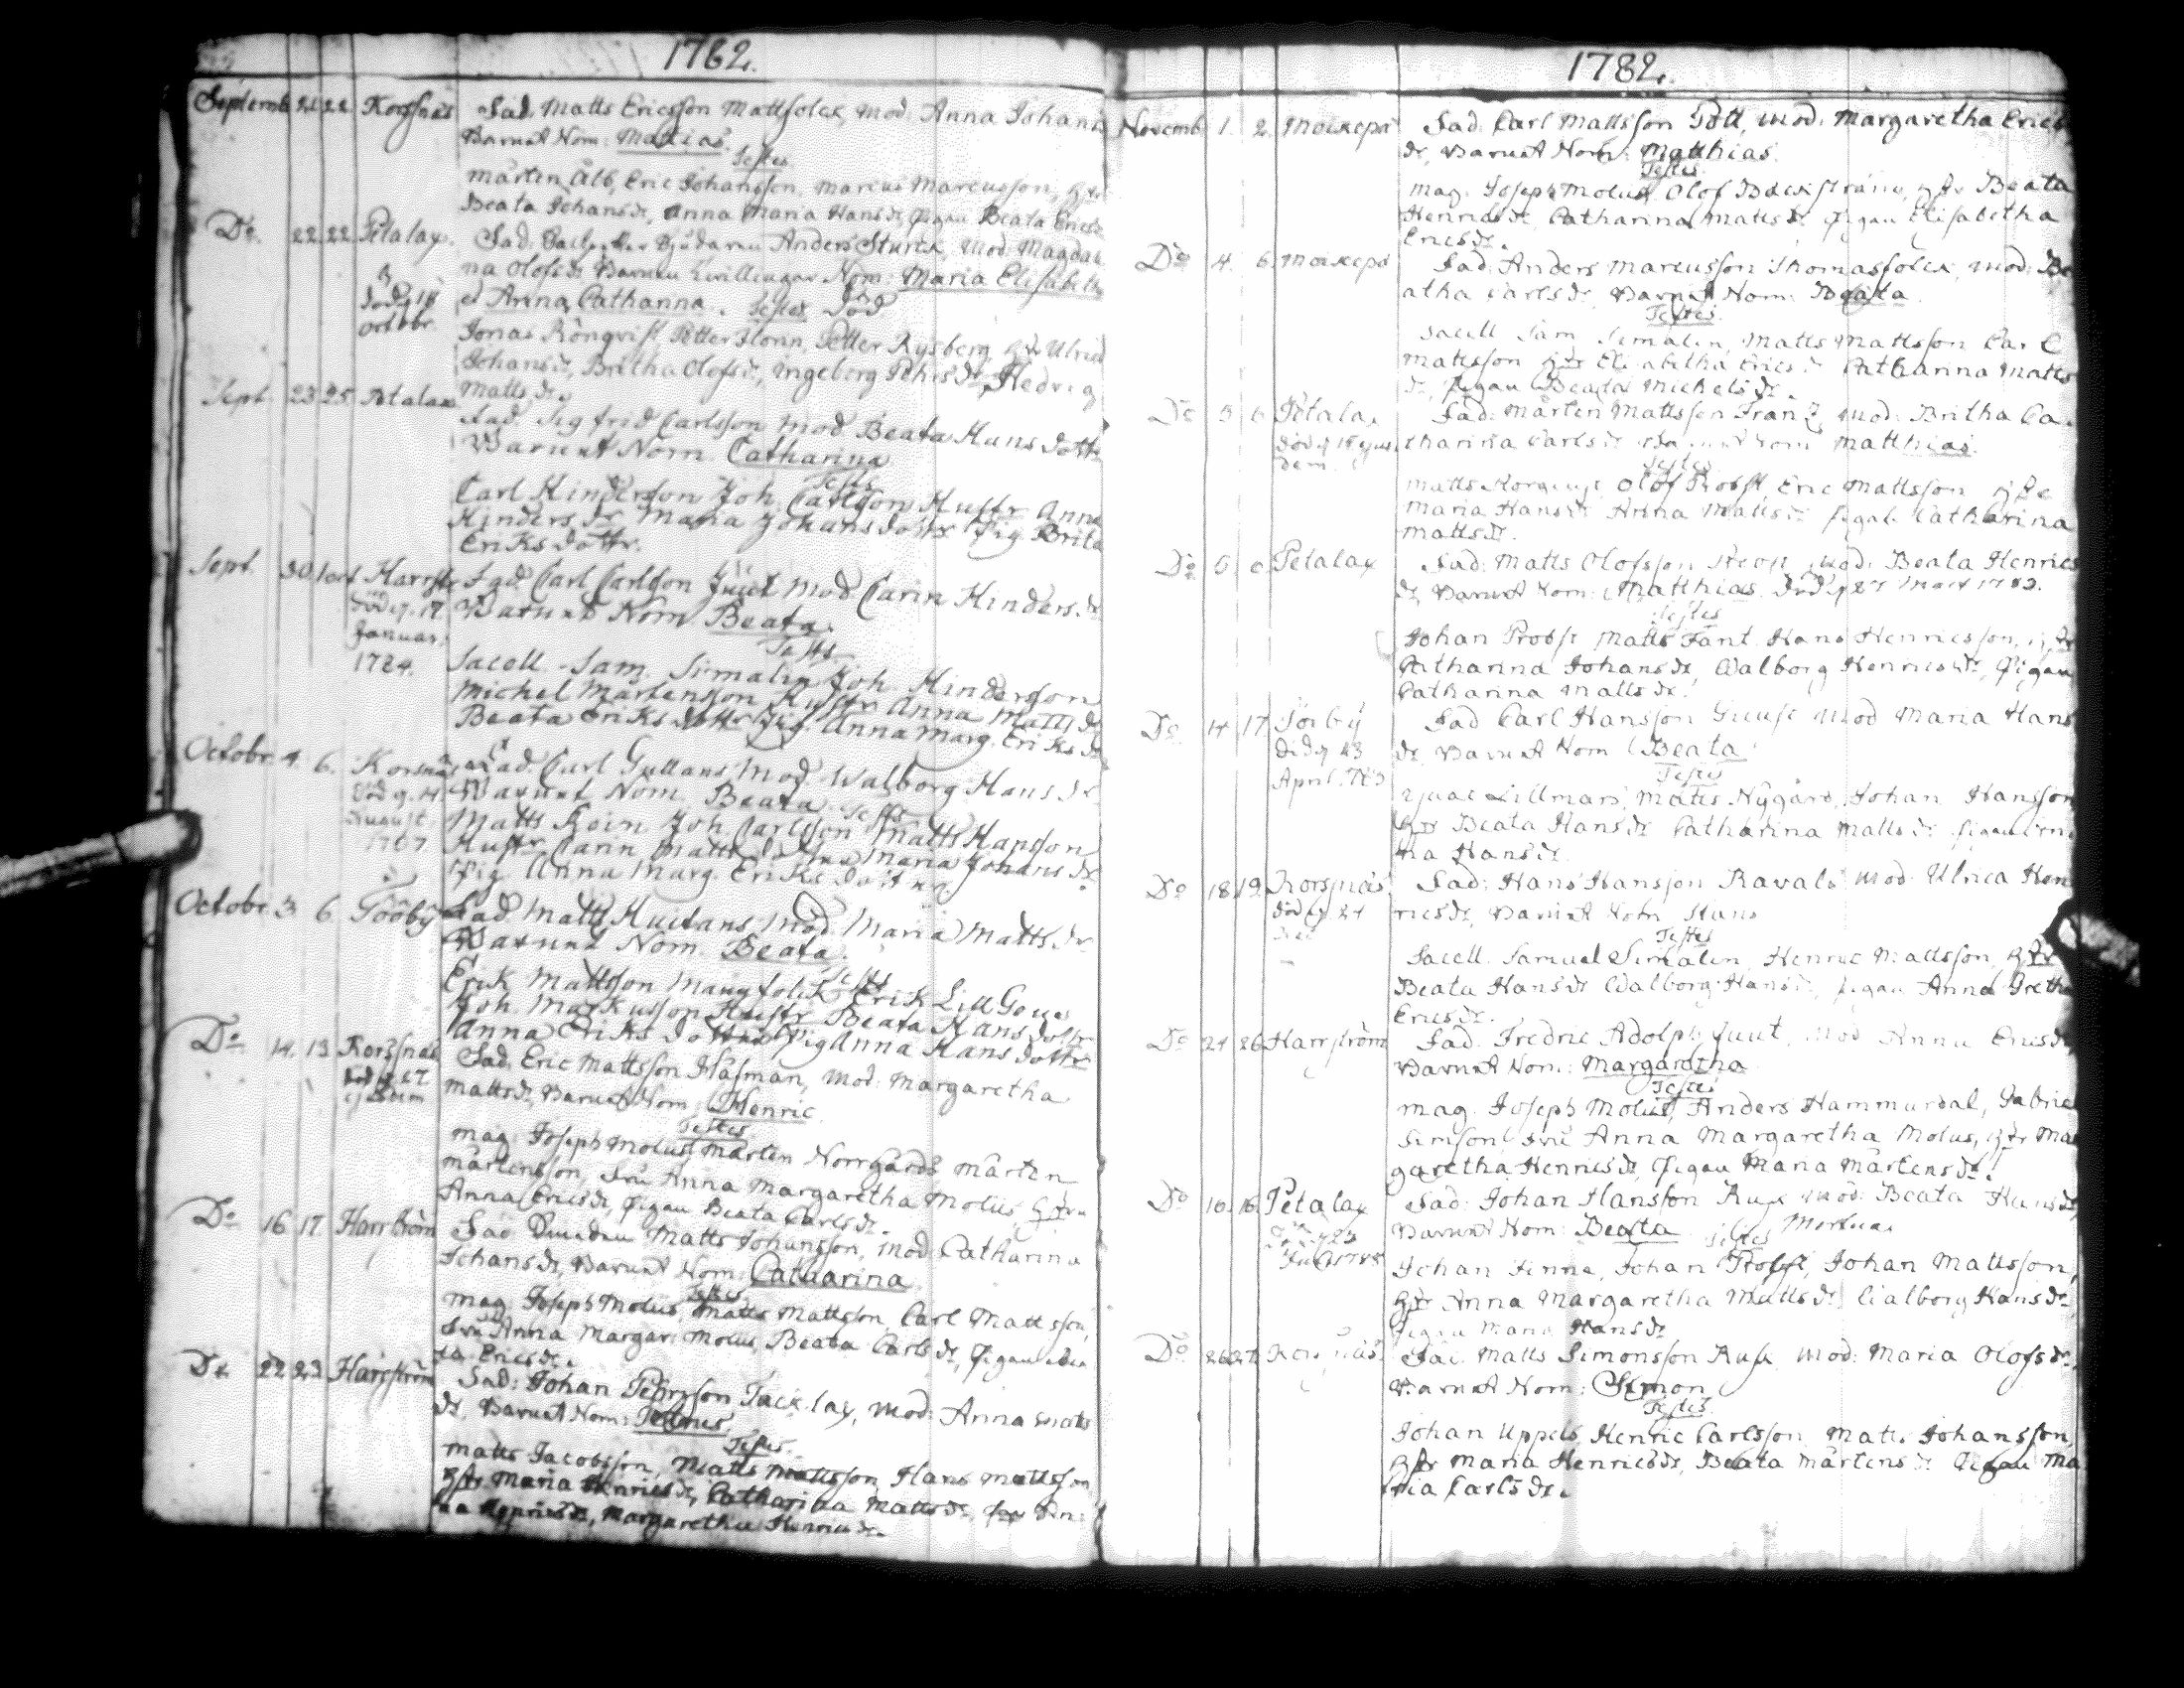 1762.
Septemb 21 22 Korssnäs Fad. Matts Ericsson Mattsolex, mod. Anna Johans
Barnet Nom: Mattias.
Testes
Mårten Alb, Eric Johansson, Marcus Marcusson, hstr
Beata Johansdr, Anna Maria Hansdr, Pigan Beata Ericsdr
Do 22 22 Petalax. Fad. Anders Sturck, Mod: Magdale
na Olofsdr Barnen Tvillingar Nom: Maria Elisabeth
död 18 octobr. et Anna Catharina. Testes död
Jonas Rönqvist, Petter Florin, Petter Rysberg, hstr Ulrica
Johansdr, Britha Olofsdr, Ingeborg Johsdr, Hedvig
Mattsdr.
Sept. 23 25 Petalax Fad. Sigfrid Carlsson mod Beata Hansdottr
Barnet Nom. Catharina
Testes
Carl Hindersson Joh. Carlsson Hustr Anna
Hindersdr Maria Johansdottr Pig. Brita
Eriksdottr.
Sept. 30 1 oct Harrstr Fad. Carl Carlsson Juut Mod Carin Hindersdr
död 17 Januar. 1784. Barnet Nom Beata.
Testes
Sacell. Sam. Simalin Joh. Hindersson
Michel Mårtensson Hustr Anna Mattsdr
Beata Eriksdottr Pig. Anna Marg. Eriksdr
Octobr. 4 6. Korsnäs Fad. Carl Gullans Mod. Walborg Hansdr
död 14 August Barnet Nom. Beata. Testes
Matts Rein Joh. Carlsson Matts Hansson
Hustr Carin Mattsdottr Maria Johansdr
Pig Anna Marg. Eriksdotter
Octobr. 3 6 Tööby Fad. Matts Huitans, Mod. Maria Mattsdr
Barnet Nom. Beata.
Testes
Erik Mattsson Mangfolek Erik Lill
Joh. Markusson Hustr Beata Hansdottr
Anna Eriksdottr Pig Anna Hansdottr
Do 14 15 Korssnäs Fad. Eric Mattsson Håfman, mod: Margaretha
död 27 ejusdem Mattsdr, Barnet Nom Henric.
Testes
Mag. Joseph Molus, Mårten Norrgårds Mårten
Mårtensson, Fru Anna Margaretha Molus hstr
Anna Ericsdr, Pigan Beata Carlsdr.
Do 16 17. Harrström Fad. Matts Johansson, Mod. Catharina
Johansdr, Barnet Nom: Catharina.
Testes
Mag. Joseph Molus, Matts Mattsson, Carl Mattsson,
Fru Anna Margar: Molus, Beata Carlsdr, Pigan
Ericsdr.
Do 22 23 Harrström Fad: Johan Pehrsson Jacklax, Mod: Anna Matts
dr, Barnet Nom: Johannes.
Testes.
Matts Jacobsson, Matts Mattsson, Hans Mattsson
hstr Maria Henricsdr, Catharina Mattsdr, An:
na Henricsdr, Margaretha Henricsdr.
1782.
Novemb 1. 2. Fad. Carl Mattsson Pött, Mod: Margaretha Erics
dr, Barnet Nom: Matthias.
Testes
Mag. Joseph Molus, Olof Bäckström, hstr Beata
Henricsdr, Catharina Mattsdr Pigan Elisabetha
Ericsdr.
Do 4. 6. Fad: Anders Marcusson Thomasfolex, mod: Be
atha Carlsdr, Barnet Nom: Beata.
Testes.
Sacell Sam Simalin, Matts Mattsson Carl
Mattsson hstr Elisabetha Ericsdr Catharina Matts
dr, Pigan Beata Michelsdr.
Do 5 6 Petalax Fad: Mårten Mattsson Franz, Mod: Britha Ca
död 15 ejus dem. tharina Carlsdr Barnet Nom Matthias.
Testes
Matts Olof Probst, Eric Mattsson, hstr
Maria Hansdr Anna Mattsdr Pigan Catharina
Mattsdr.
Do 5. 6. Petalax Fad: Matts Olofsson Mod: Beata Henrics
dr, Barnet Nom: Matthias. död 27 Mart 1783.
Testes
Johan Probst Matts Fant Hans Henricsson, hstr
Catharina Johansdr, Walborg Henricsdr, Pigan
Catharina Mattsdr.
Do 14 17 Töiby Fad Carl Hansson Mod Maria Hans
död 23 April. 1783 dr Barnet Nom Beata
Testes
Lillmars, Matts Nygård, Johan Hansson
hstr Beata Hansdr Catharina Mattsdr Pigan
na Hansdr.
Do 18 19. Korssnäs Fad: Hans Hansson Ravals Mod: Ulrica Hen
död 24 ricsdr, Barnet Nom Hans
Testes
Sacell. Samuel Simalin, Henric Mattsson, hstr
Beata Hansdr Walborg Hansdr, Pigan Anna Greta
Ericsdr.
Do 24 26 Harrström Fad. Fredric Adolph Juut, Mod Anna Ericsdr
Barnet Nom: Margaretha
Testes
Mag. Joseph Molus, Anders Hammardal, Gabriel
Simsons Fru Anna Margaretha Molus, hstr Mar
garetha Henricsdr, Pigan Maria Mårtensdr.
Do 16. 16. Petalax Fad: Johan Hansson Mod: Beata Hansdr
Barnet Nom: Beata Testes Mortua
Johan Finne, Johan Probst, Johan Mattsson,
hstr Anna Margaretha Mattsdr, Walborg Hansdr
Pigan Maria Hansdr
Do 26 27. Korssnäs Fad. Matts Simonsson Mod: Maria Olofsdr,
Barnet Nom: Simon
Testes.
Johan Uppels, Henric Carlsson Matts Johansson,
hstr Maria Henricsdr, Beata Mårtensdr Pigan Ma
ria Carlsdr.